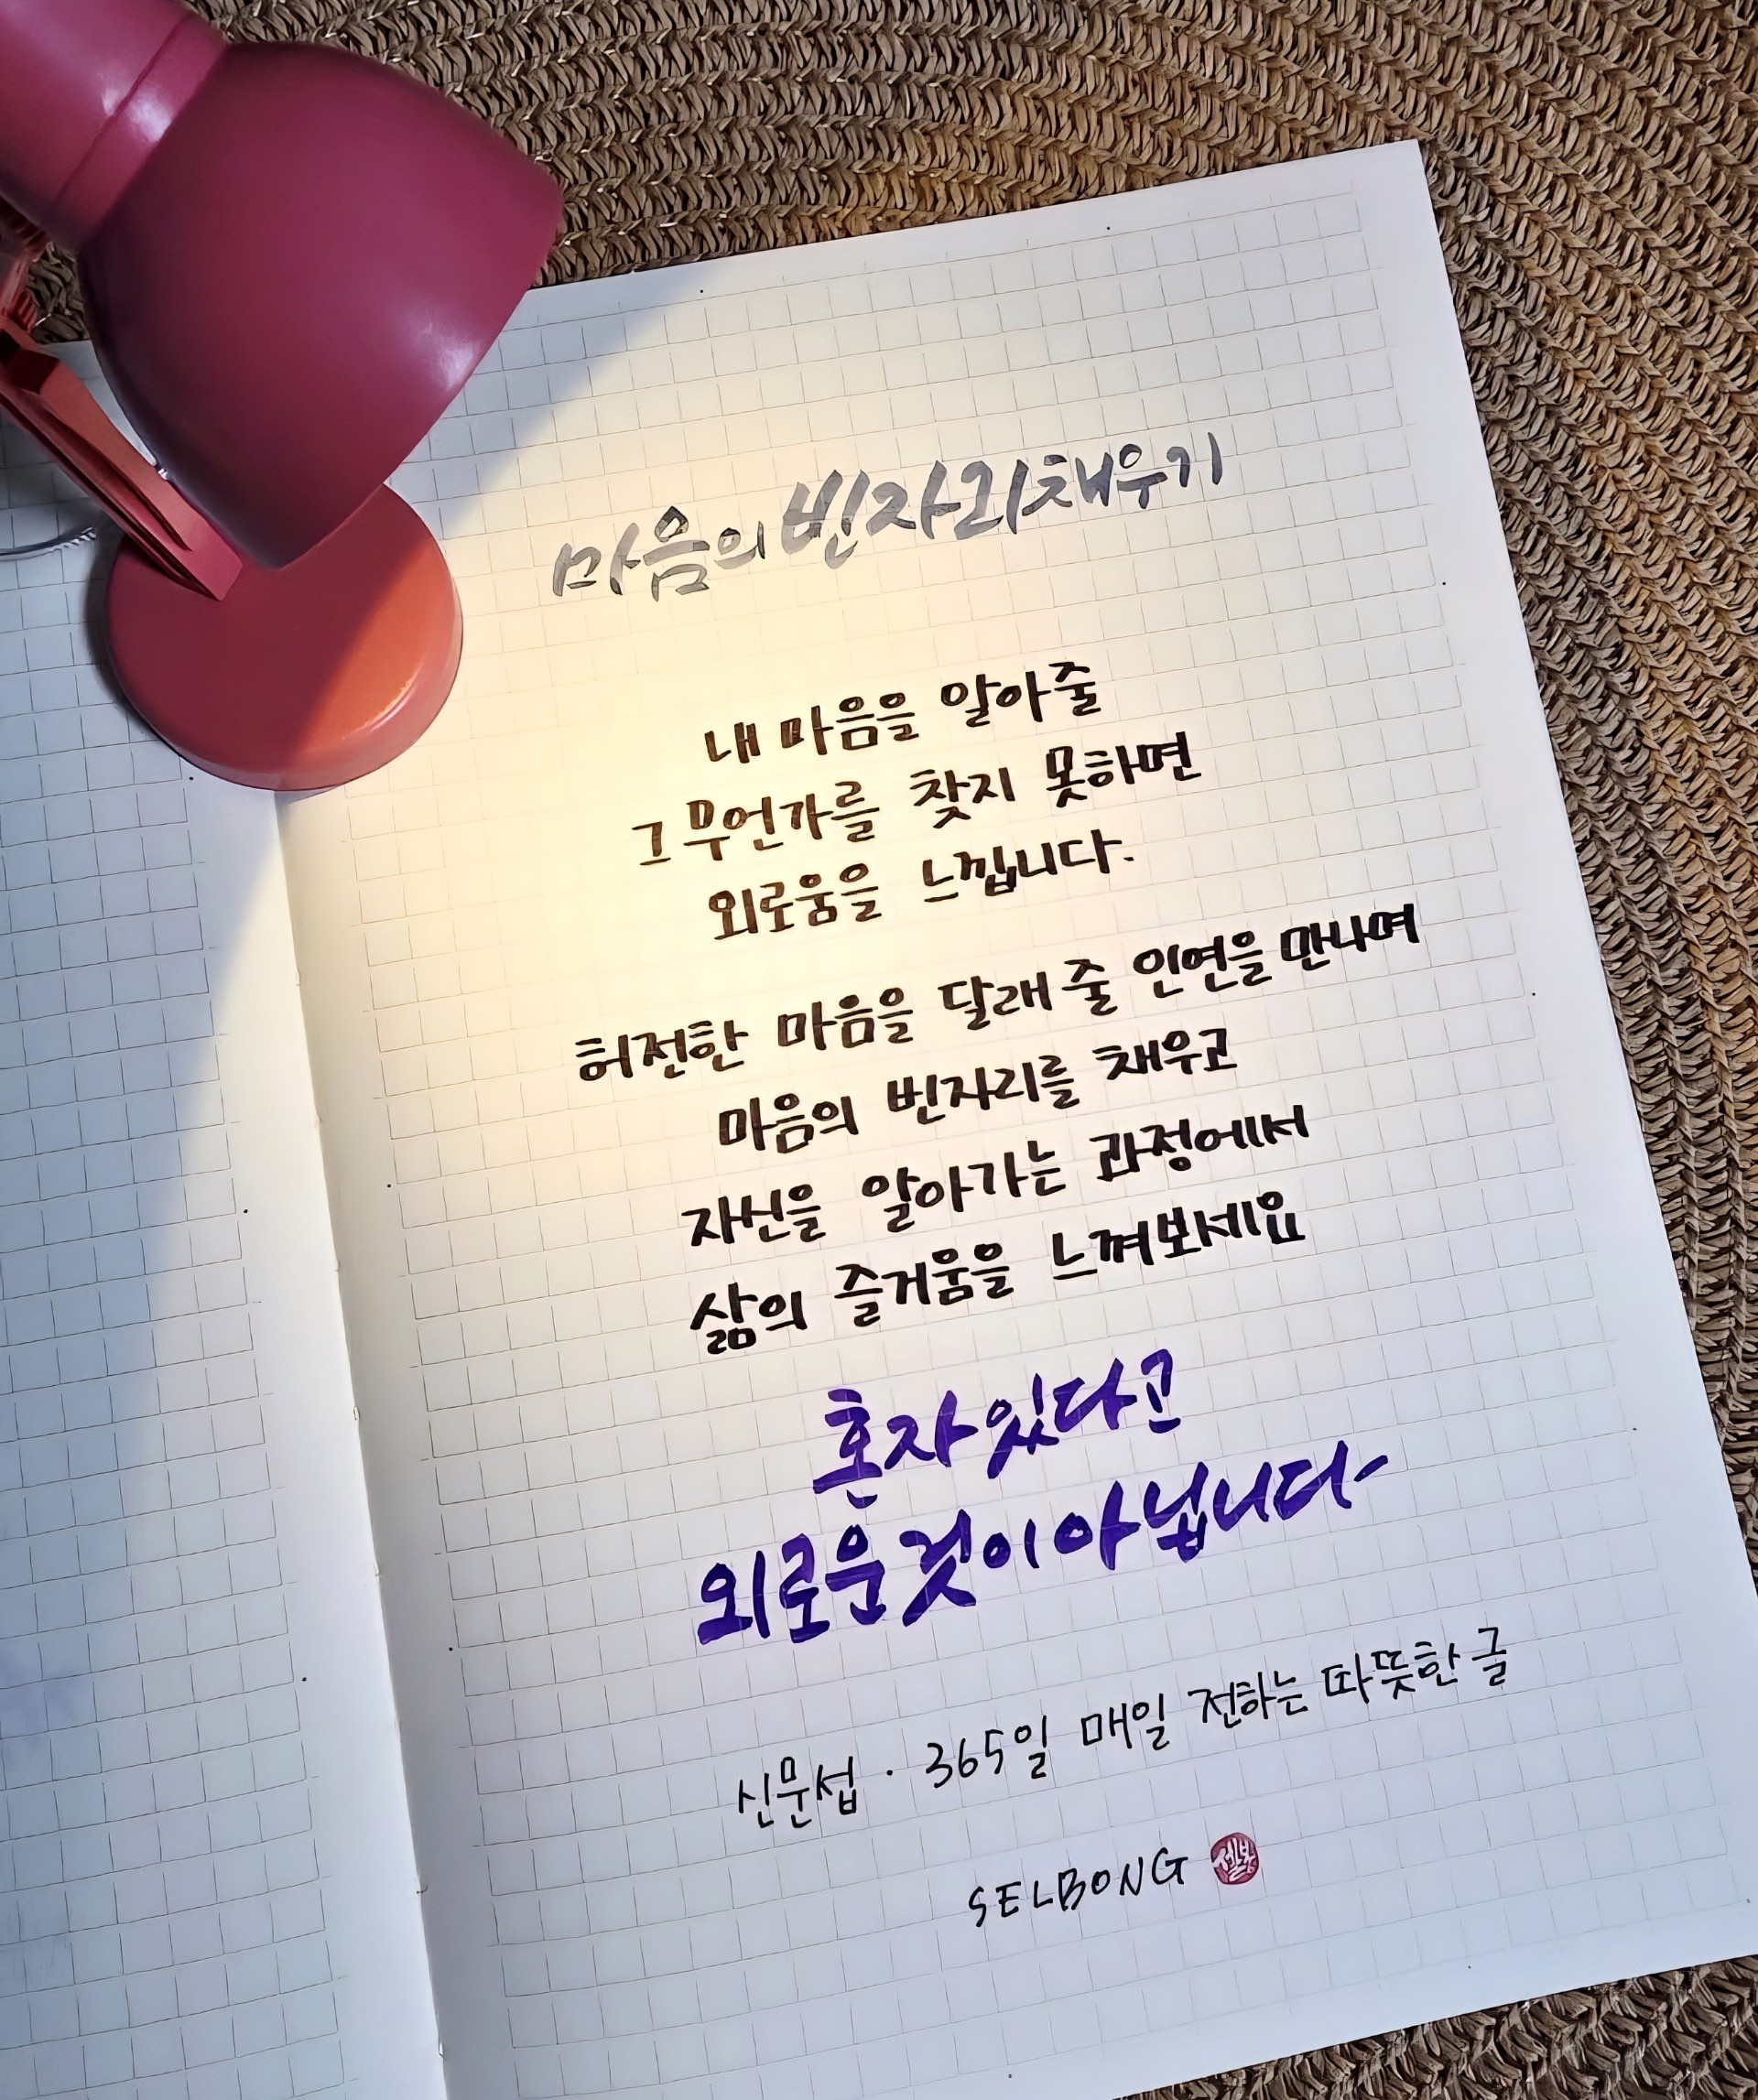 마음의 빈자리 채우기
내 마음을 알아줄
그 무언가를 찾지 못하면
외로움을 느낍니다.
허전한 마음을 달래 줄 인연을 만나며
마음의 빈자리를 채우고
자신을 알아가는 과정에서
삶의 즐거움을 느껴보세요
혼자 있다고
외로운 것이 아닙니다-
신문섭 · 365일 매일 전하는 따뜻한 글
SELBONG 셀봉